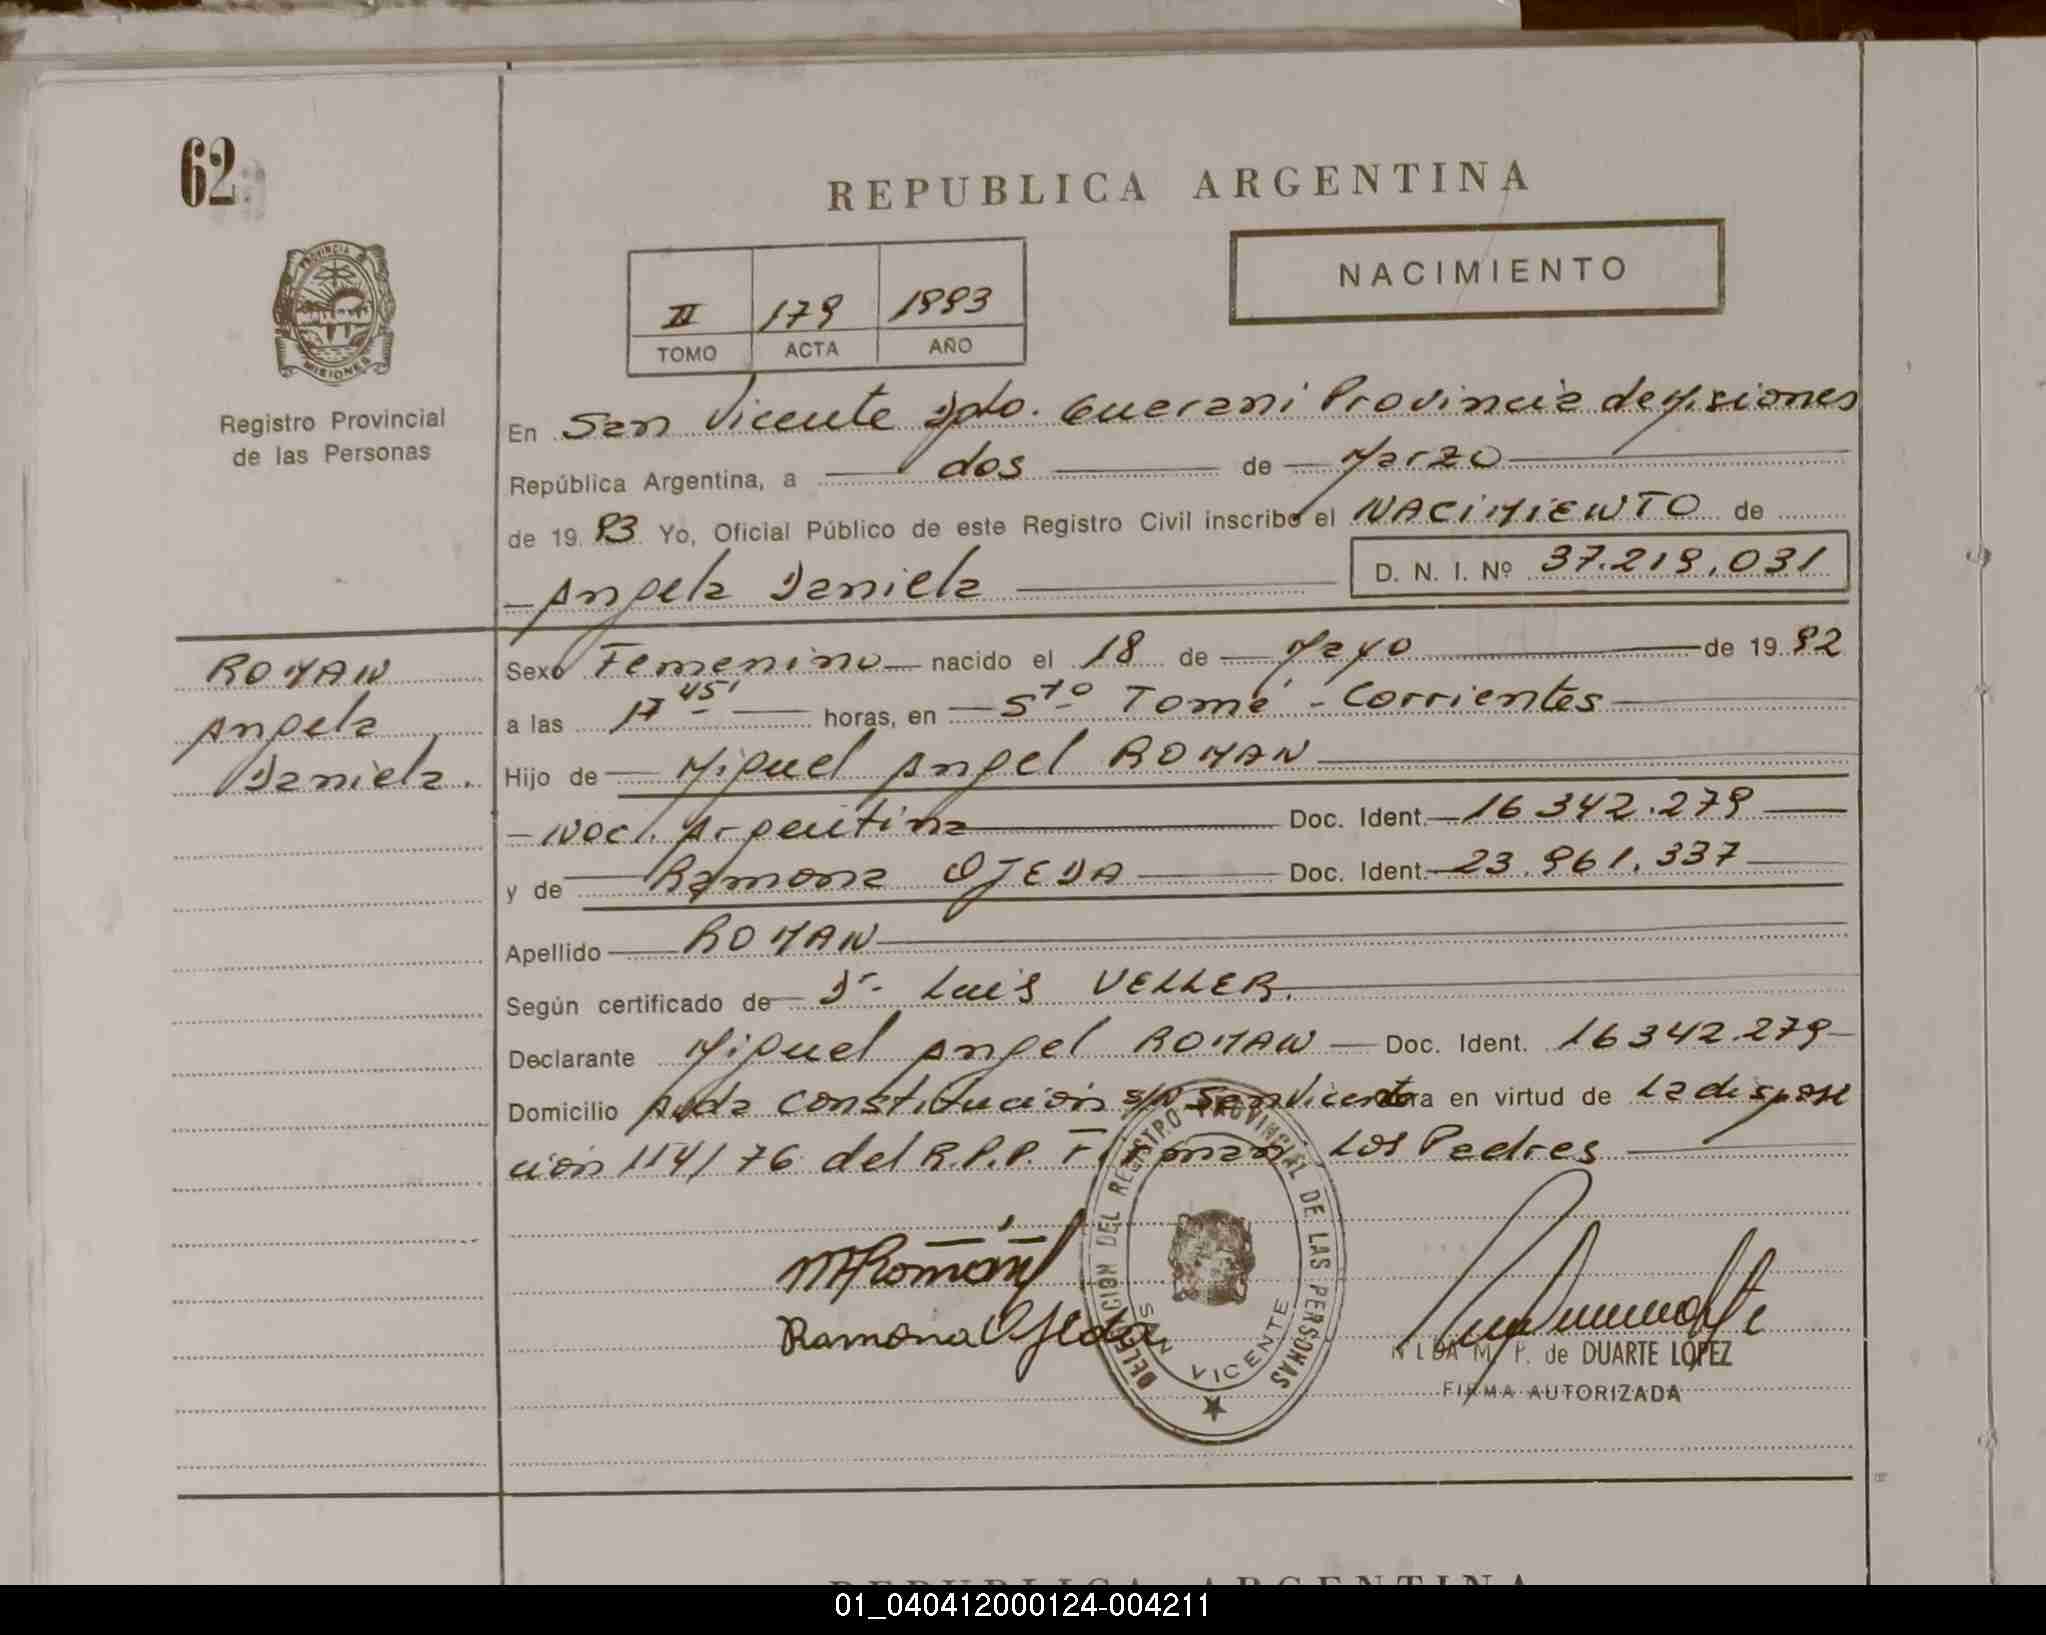 62
REPUBLICA ARGENTINA
NACIMIENTO
II 179 1993
TOMO ACTA AÑO
PROVINCIA DE
MISIONES
Registro Provincial
de las Personas
En San Vicente Dpto. Guarani Provincia de Misiones
República Argentina, a dos de Marzo
de 19 93 Yo, Oficial Público de este Registro Civil inscribo el NACIMIENTO de
Angela Daniela D. N. I. Nº 37.219.031
ROMAN
Angela
Daniela.
Sexo Femenino nacido el 18 de Mayo de 19 92
a las 17 45' horas, en Sto Tomé - Corrientes
Hijo de Miguel Angel ROMAN
Nac. Argentina Doc. Ident. 16 342.279
y de Ramona OJEDA Doc. Ident. 23.961.337
Apellido ROMAN
Según certificado de Dr. Luis VELLER.
Declarante Miguel Angel ROMAN Doc. Ident. 16 342.279
Domicilio Avda Constitución s/n San Vicente obra en virtud de La disposi
ción 114/76 del R.P.P. Firman Los Padres
MRomán
Ramona Ojeda
DELEGACION DEL REGISTRO PROVINCIAL DE LAS PERSONAS
SAN VICENTE
NILDA M. P. de DUARTE LOPEZ
FIRMA AUTORIZADA
REPUBLICA ARGENTINA
01_040412000124-004211